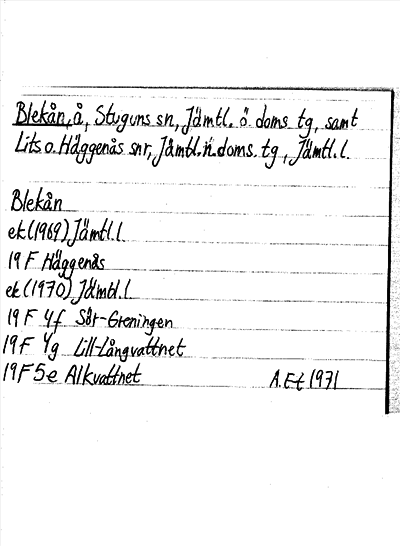 Blekån, å, Stuguns sn, Jämtl. ö. doms tg, samt
Lits o. Häggenås snr, Jämtl. n. doms. tg, Jämtl. l.
Blekån
ek (1969) Jämtl. l.
19 F Häggenås
ek (1970) Jämtl. l.
19 F 4f Sör-Greningen
19 F 4g Lill-Långvattnet
19 F 5e Alkvattnet
A. Et 1971